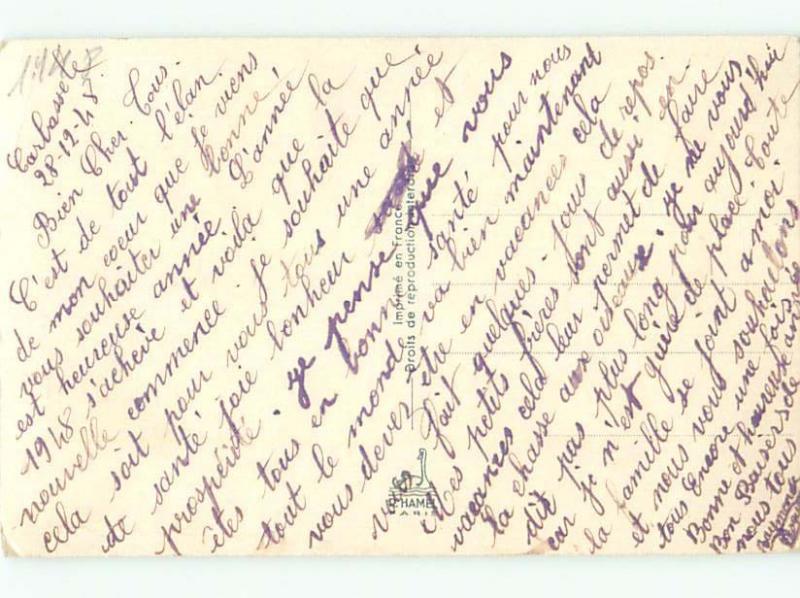 Carbasse le
28-12-48.
Bien Cher Tous.
C'est de tout l'élan
de mon coeur que je viens
vous souhaiter une bonne,
est heureuse année. L'année
1948 s'achève et voilà que la
nouvelle commence. Je souhaite que
cela soit pour vous tous une année
de santé joie bonheur et
prospérité. Je pense que vous
êtes tous en bonne santé pour nous
tout le monde va bien maintenant
vous devez être en vacances cela
fait quelques jours de repos.
Mes petits frères sont aussi en
vacances cela leur permet de faire
la chasse aux oiseaux. Je ne vous
dit pas plus long pour aujourd'hui
car je n'est guère de place. Toute
la famille se joint a moi
et nous vous souhaitons
tous Encore une fois
Bonne et heureuse année
Bon Baisers de
nous tous
Imprimé en France
Droits de reproduction interdits
CHAMEL
PARIS